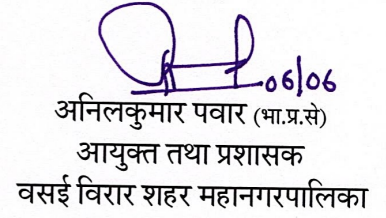 06/06
अनिलकुमार पवार (भा.प्र.से)
आयुक्त तथा प्रशासक
वसई विरार शहर महानगरपालिका